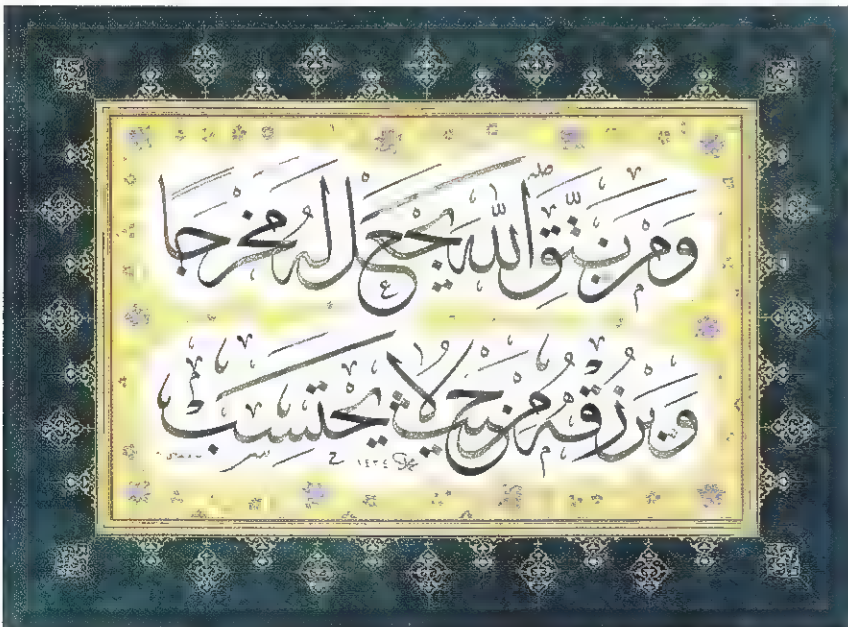 وَمَنْ يَتَّقِ اللَّهَ يَجْعَلْ لَهُ مَخْرَجًا
وَيَرْزُقْهُ مِنْ حَيْثُ لَا يَحْتَسِبُ
١٤٣٤